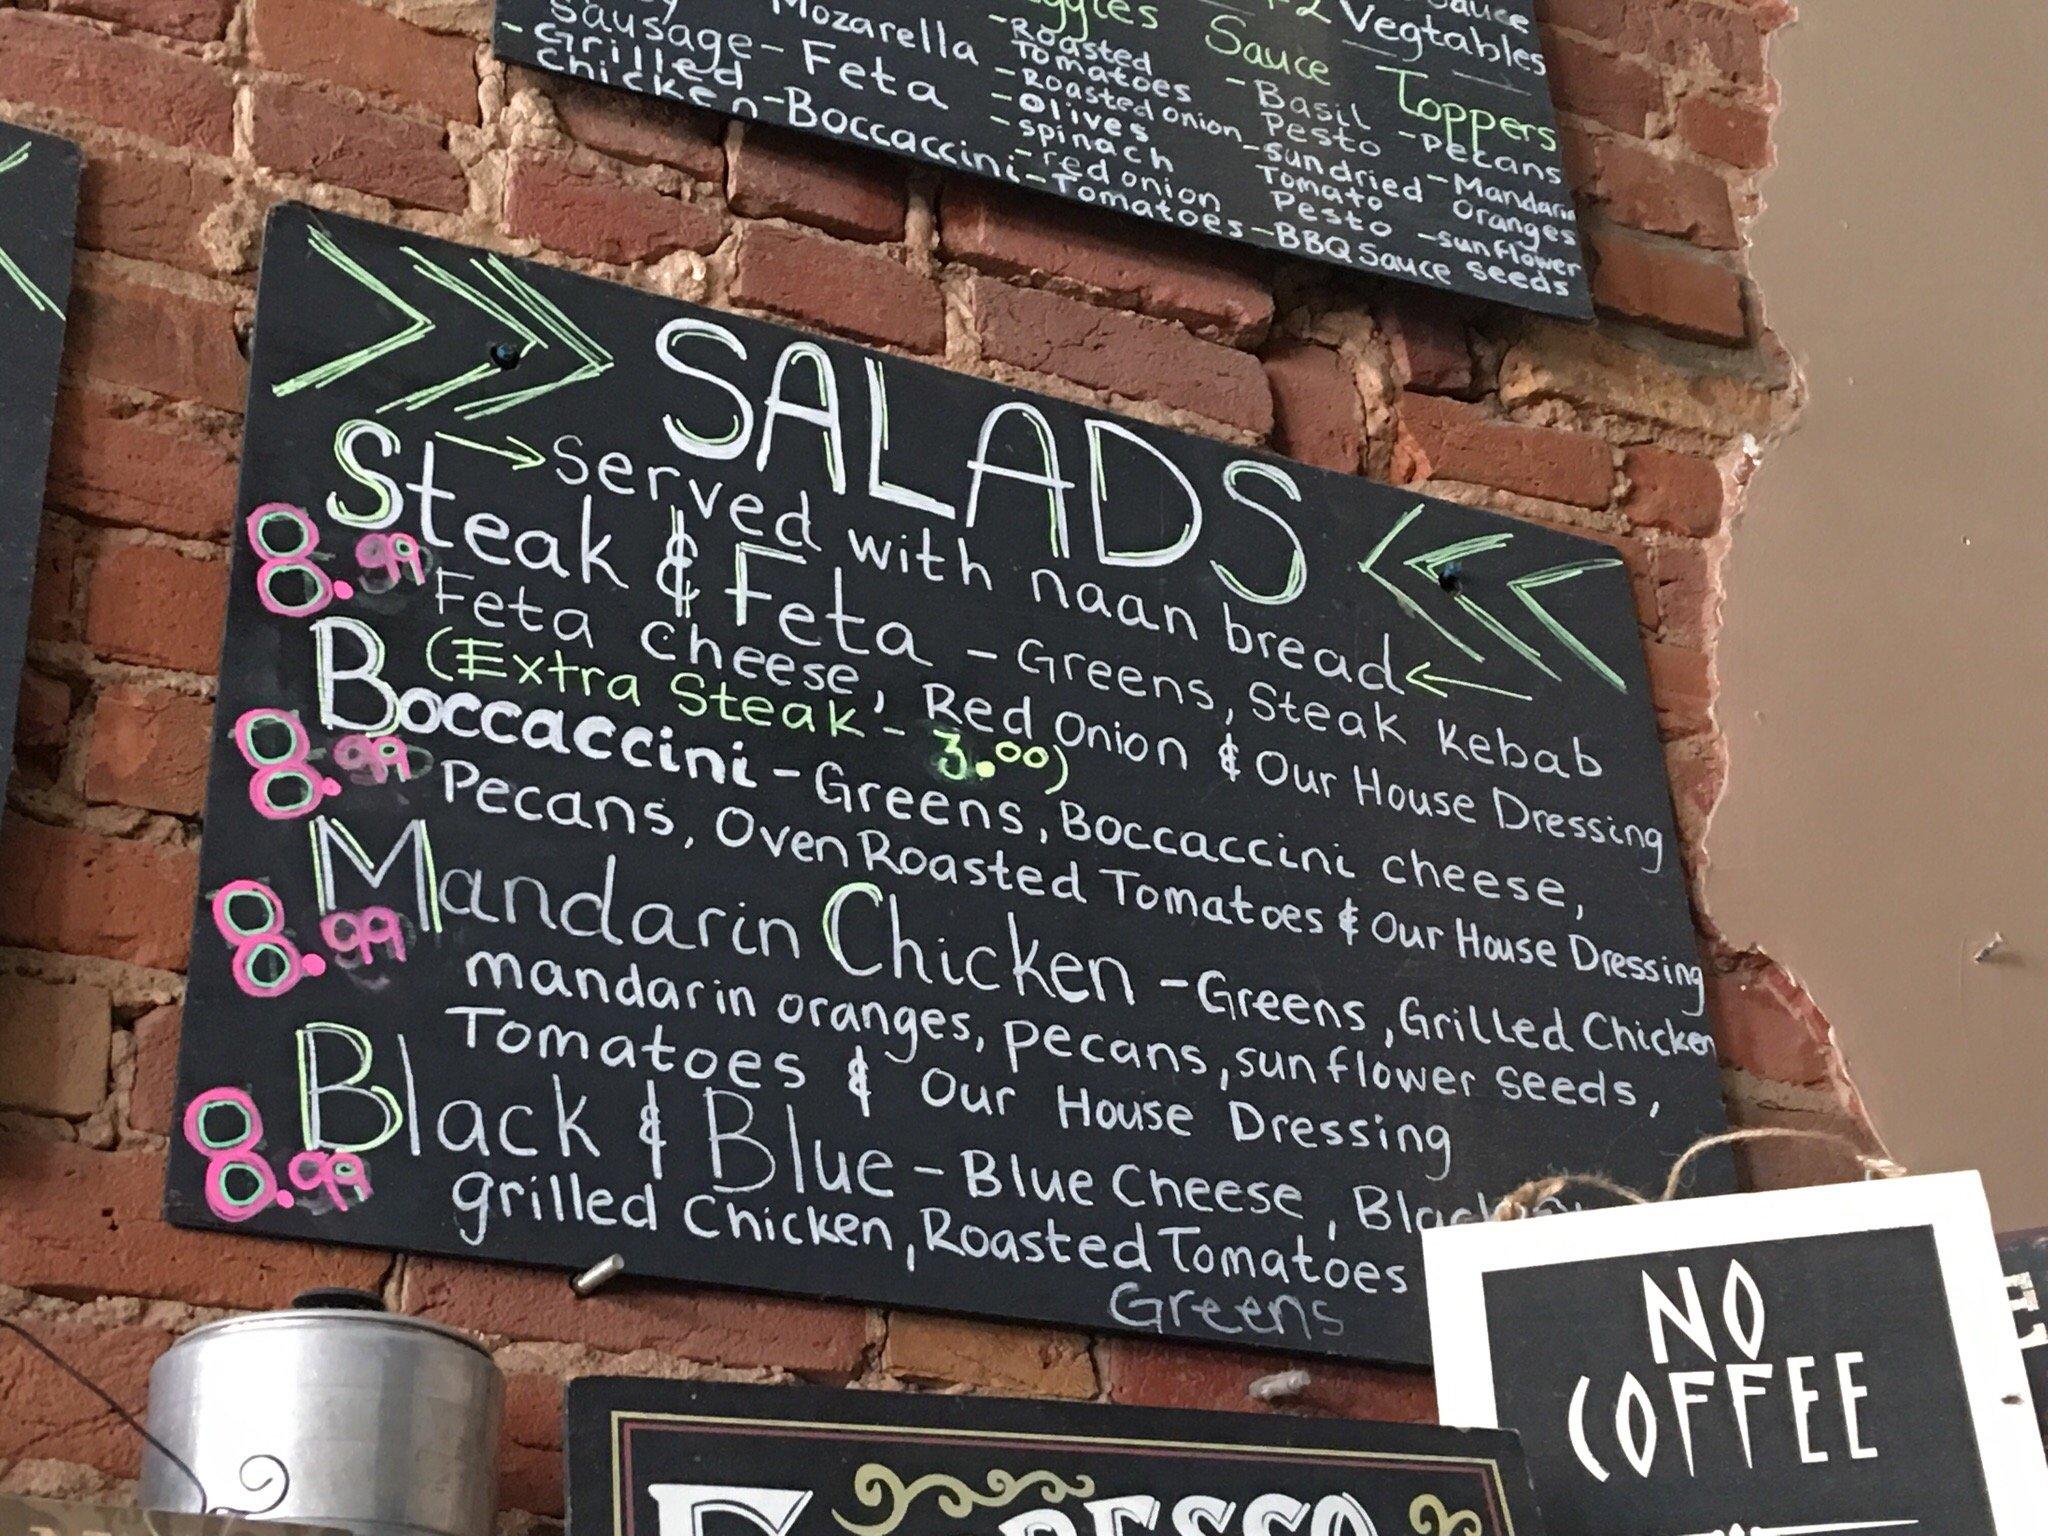 Sauce
Vegtables
Mozarella
Sauce
Toppers
Sausage - Feta
- Grilled Chicken - Boccaccini
- Roasted Tomatoes
- Roasted onion
- Olives
- spinach
- red onion
- Tomatoes
- Basil Pesto
- sundried Tomato Pesto
- BBQ Sauce
- Pecans
- Mandarin Oranges
- sunflower seeds
SALADS
Served with naan bread
Steak & Feta - Greens, Steak Kebab
8.99
Feta Cheese, Red Onion & Our House Dressing
(Extra Steak - 3.00)
Boccaccini - Greens, Boccaccini cheese,
8.99
Pecans, Oven Roasted Tomatoes & Our House Dressing
Mandarin Chicken - Greens, Grilled Chicken
8.99
mandarin oranges, pecans, sunflower seeds,
Tomatoes & Our House Dressing
Black & Blue - Blue Cheese,
8.99
grilled Chicken, Roasted Tomatoes
Greens
NO
COFFEE